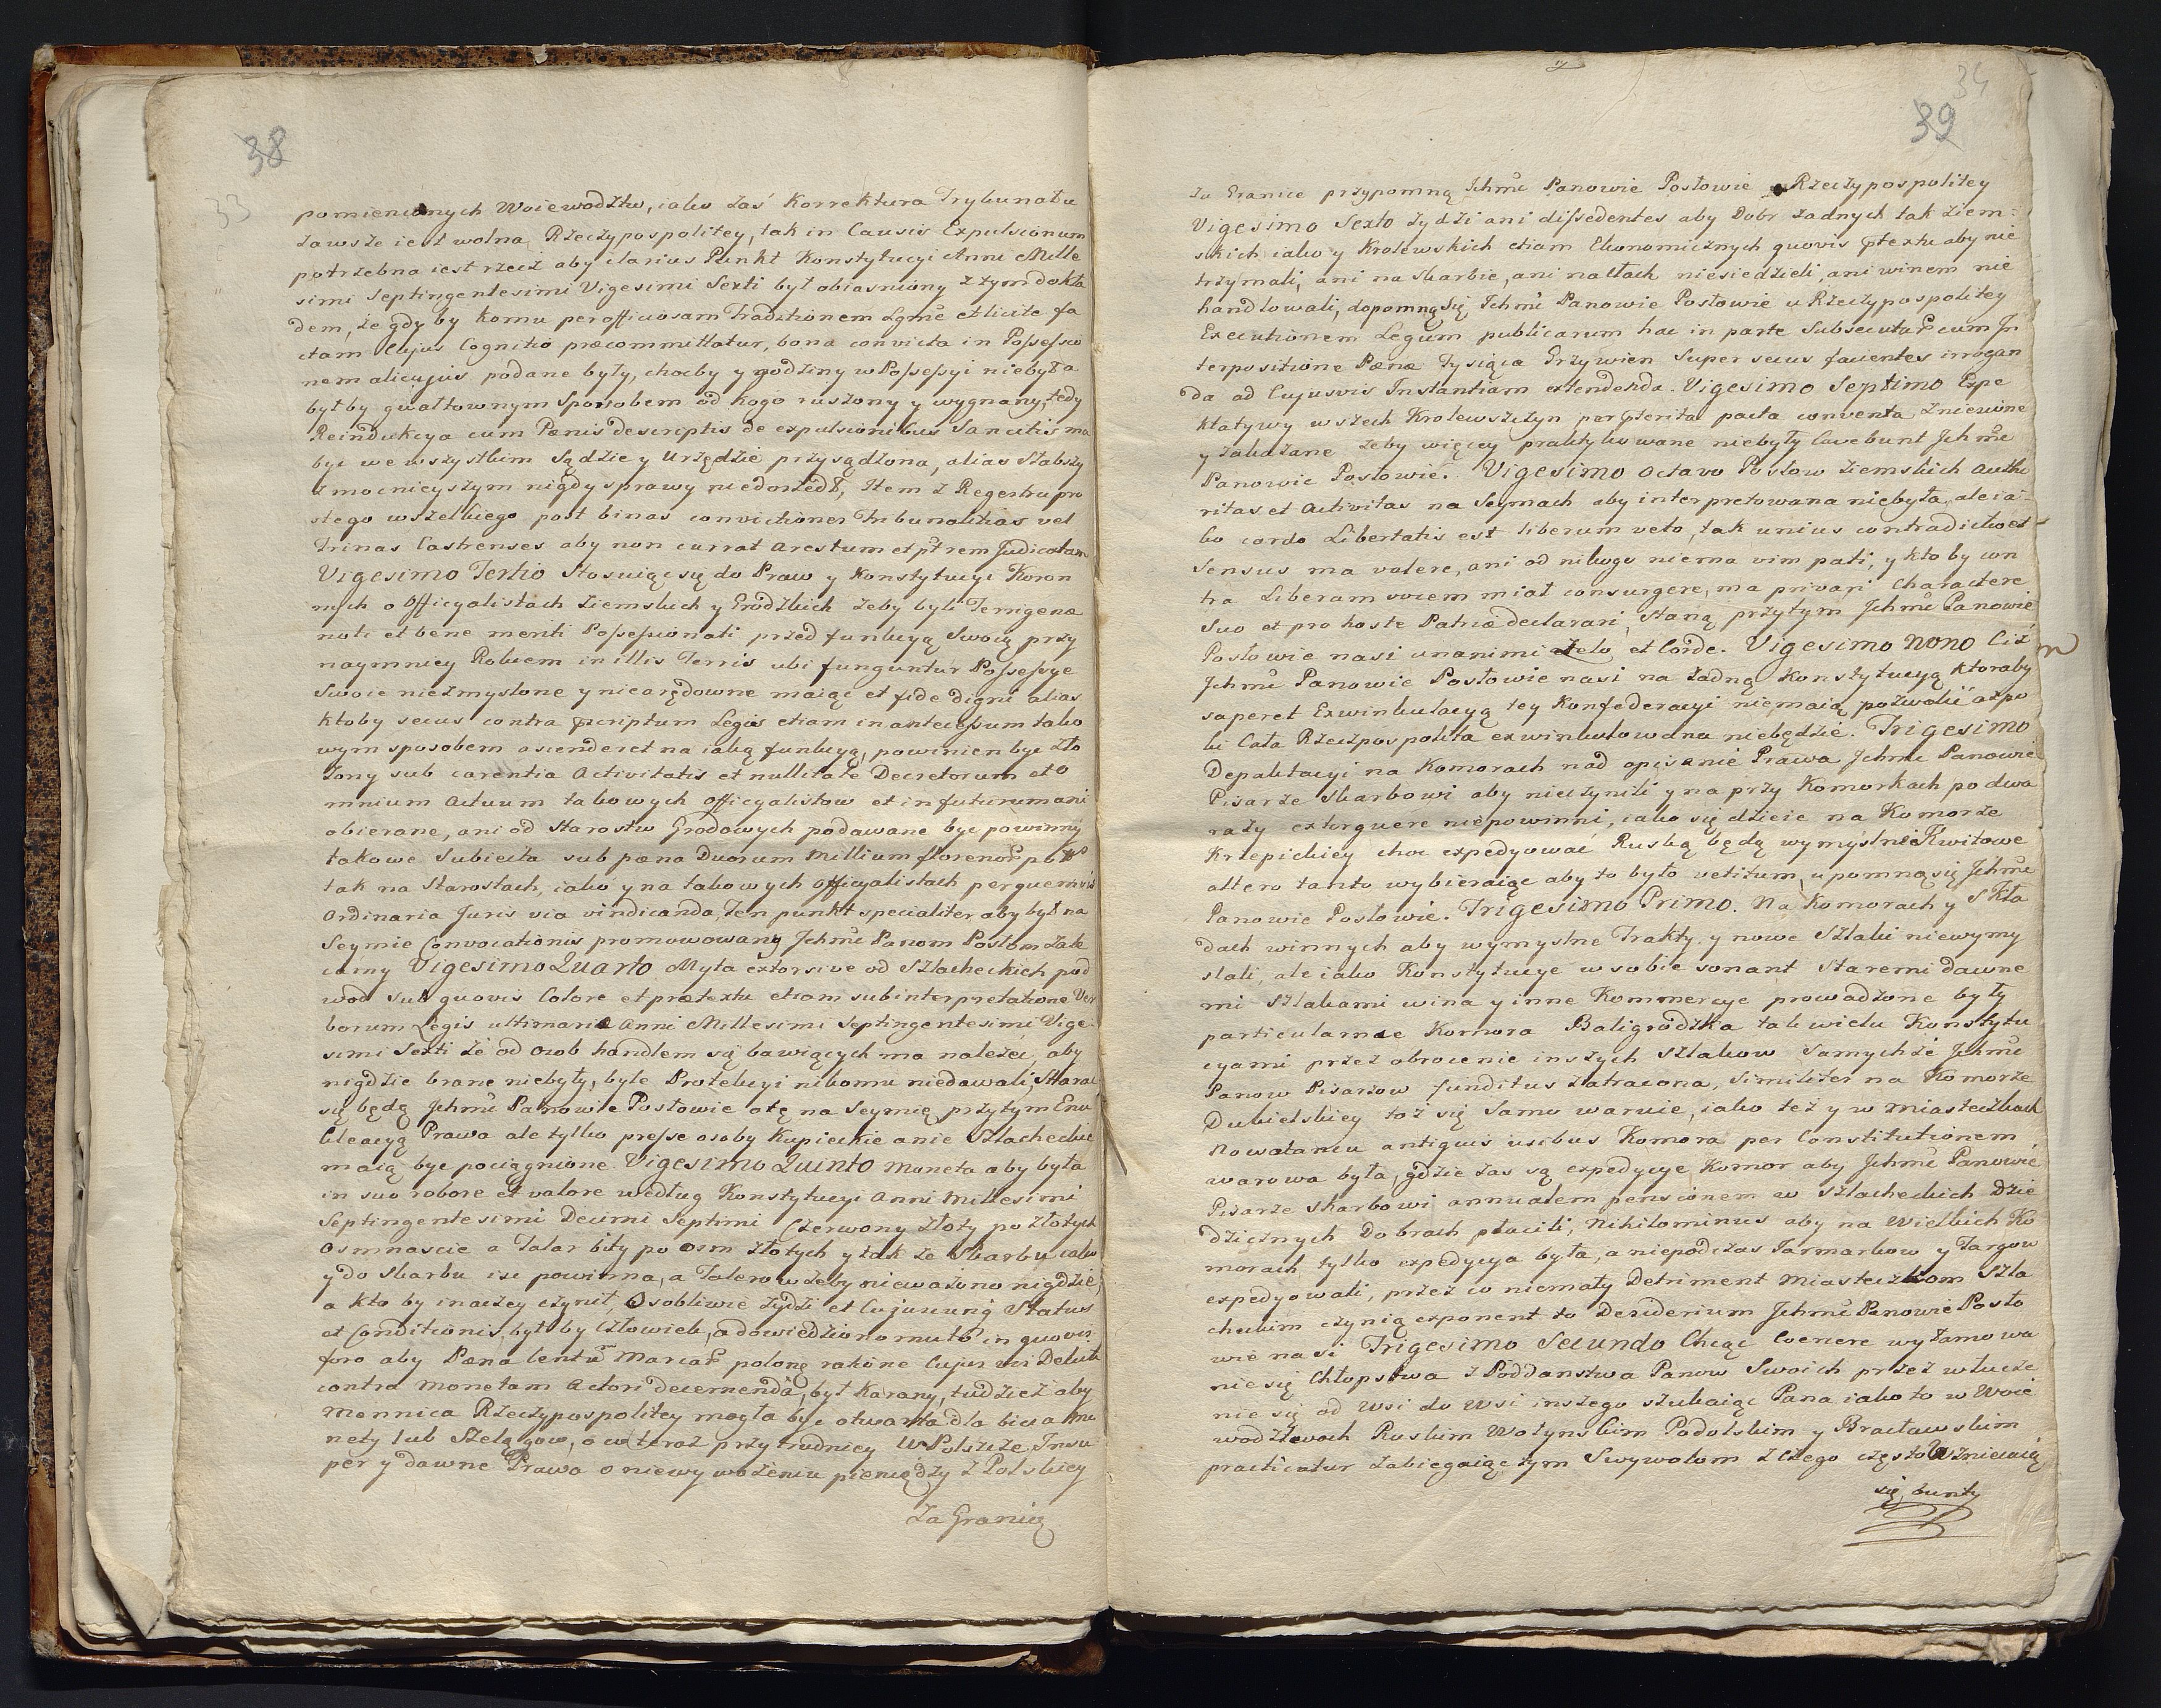 38
33
pomienionych Woiewodztw, iako zaś Korrektura Trybunału
zawsze iest wolna Rzeczypospolitey, tak in Causis Expulsionum
potrzebna iest rzecz aby clarius Punkt Konstytucyi Anni Mille
simi Septingentesimi Vigesimi Sexti był obiasniony z tym dokła
dem, że gdy by komu per officiosam Traditionem Lgme et licite fa
ctam Cujus Cognitio præcommittatur, bona convicta in Possessio
nem alicujus podane były, choćby y godziny w Possessyi niebył a
byłby gwałtownym Sposobem od kogo ruszony y wygnany, tedy
Reindukcya cum Pænis descriptis de expulsionibus Sancitis ma
byc we wszystkim Sądzie y Urzędzie przysądzona, alias Słabszy
z mocnieyszym nigdy sprawy niedoszedł, Item z Regestru pro
stego wszelkiego post binas convictiones Tribunalitias vel
Trinas Castrenses aby non currat Arestum et ptrem Judicatam
Vigesimo Tertio Stosuiąc się do Praw y Konstytucyi Koron
nych o Officyalistach Ziemskich y Grodzkich żeby byli Terrigenæ
noti et bene meriti Possessionati przed funkcyą Swoią przy
naymniey Rokiem in illis Terris ubi funguntur Possessye
Swoie niezmyslone y niearędowne maiąc et fide digni alias
ktoby secus contra pscriptum Legis etiam in antecessum tako
wym sposobem ascenderet na iaką funkcyą, powinien byc zło
żony sub carentia Activitatis et nullitate Decretorum et o
mnium Actuum takowych Officyalistow et in futurum ani
obierane, ani od Starostw Grodowych podawane byc powinny
takowe Subiecta sub pæna Duorum Millium florenor
tak na Starostach, iako y na takowych Officyalistach per quemvis
Ordinaria Juris via vindicanda, Ten punkt specialiter aby był na
Seymie Convocationis promowowany Jchmc Panom Posłom zale
camy Vigesimo Quarto Myta extorsive od Szlacheckich pod
wod sub quovis Colore et prætextu etiam sub interpretatione Ver
borum Legis ultimariæ Anni Millesimi Septingentesimi Vige
simi Sexti że od Osob handlem się bawiących ma należeć, aby
nigdzie brane niebyły, byle Protekcyi nikomu niedawali, Starac
się będą Jchmc Panowie Posłowie o tę na Seymie przytym Enu
cleacyą Prawa ale tylko presse osoby Kupieckie a nie Szlacheckie
maią byc pociągnione. Vigesimo Quinto Moneta aby była
in suo robore et valore według Konstytucyi Anni Millesimi
Septingentesimi Decimi Septimi Czerwony złoty po złotych
Osmnascie a Talar bity po osm złotych y tak ze Skarbu iako
y do Skarbu isc powinna, a Talerow żeby nieważono nigdzie,
a kto by inaczey czynił, Osobliwie żydzi et Cujuscunq Status
et Conditionis, byłby Człowiek, a dowiedziono mu to in quovis
foro aby Pæna Centum Marcar polong ratione Cujus vis Delicti
contra Monetam Actori decernenda, był Karany, tudzież aby
Mennica Rzeczypospolitey mogła byc otwarta dla bicia Mo
nety lub Szelągow, o co teraz przytrudniey w Polszcze, Insu
per y dawne Prawa o niewywożeniu pieniędzy z Polskiey
za Granicę
34
39
za Granice przypomną Jchmc Panowie Posłowie u Rzeczypospolitey
Vigesimo Sexto Zydzi ani dissedentes aby Dobr żadnych tak Ziem-
skich iako y Krolewskich etiam Ekonomicznych quovis ptextu aby nie
trzymali, ani na Skarbie, ani na Cłach niesiedzieli, ani winem nie
handlowali, dopomną się Jchmc Panowie Posłowie u Rzeczypospolitey
Executionem Legum publicarum hac in parte Subsecutar cum In
terpositione Pænæ Tysiąca Grzywien Super secus facientes irrogan
da ad Cujusvis Instantiam extendenda. Vigesimo Septimo Expe
ktatywy wszech Krolewszczyn per pterita pacta conventa zniesione
y zakazane żeby więcey praktykowane niebyły Cavebunt Jchmc
Panowie Posłowie. Vigesimo Octavo Posłow Ziemskich Autho
ritas et Activitas na Seymach aby interpretowana niebyła, ale ia-
ko cardo Libertatis est liberum veto, tak unius contradictio et
Sensus ma valere, ani od nikogo niema vim pati, y kto by con
tra Liberam vocem miał consurgere, ma privari Charactere
Suo et pro hoste Patriæ declarari, staną przytym Jchmc Panowie
Posłowie nasi unanimi zelo et Corde. Vigesimo Nono Ciż
Jchmc Panowie Posłowie nasi na żadną Konstytucyą ktoraby
saperet Exwinkulacyą tey Konfederacyi niemaią pozwolić aż po
ki Cała Rzeczpospolita exwinkulowana niebędzie. Trigesimo
Depaktacyi na Komorach nad opisanie Prawa Jchmc Panowie
Pisarze Skarbowi aby nieczynili y na przy Komorkach po dwa
razy extorquere niepowinni, iako się dzieie na Komorze
Krzepickiey choc expedyować Ruską będą wymyslne Kwitowe
altero tanto wybieraiąc aby to było vetitum, upomną się Jchmc
Panowie Posłowie. Trigesimo Primo. Na Komorach y Skła
dach winnych aby wymyslne Trakty y nowe Szlaki niewymy
slali, ale iako Konstytucye w sobie sonant Staremi dawne
mi Szlakami wina y inne Kommercye prowadzone były
particularnie Komora Baligrodzka tak wielu Konstytu
cyami przez obrocenie inszych Szlakow Samychże Jchmc
Panow Pisarzow funditus zatracona, Similiter na Komorze
Dubielskiey toż się Samo waruie, iako też y w Miasteczkach
Nowotaniu antiquis usibus Komora per Constitutionem
warowa była, gdzie zas są expedycye Komor aby Jchmc Panowie
Pisarze Skarbowi annualem pensionem w Szlacheckich Dzie
dzicznych Dobrach płacili, Nihilominus aby na Wielkich Ko
morach tylko expedycya była, a niepodczas Jarmarkow y Targow
expedyowali, przez co niemały Detriment Miasteczkom Szla
checkim czynią exponent to Desiderium Jchmc Panowie Posło
wie nasi Trigesimo Secundo Chcąc Coercere wyłamowa
nie się Chłopstwa z Poddanstwa Panow Swoich przez włucze
nie się od wsi do wsi inszego szukaiąc Pana iako to w Woie
wodztwach Ruskim Wołynskim Podolskim y Bracławskim
practicatur zabiegaiąc tym Swywolom z czego często wzniecaią
się bunty